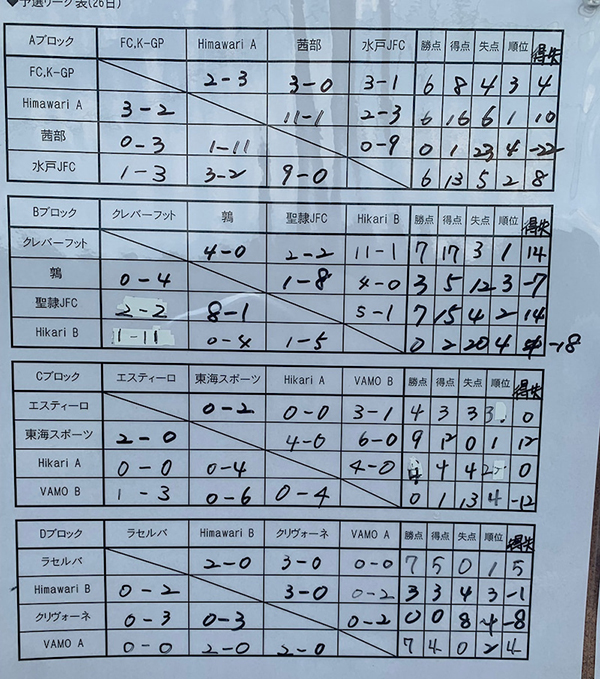 ◆予選リーグ表(26日)
Aブロック FC,K-GP Himawari A 茜部 水戸JFC 勝点 得点 失点 順位 得失
FC,K-GP 2-3 3-0 3-1 6 8 4 3 4
Himawari A 3-2 11-1 2-3 6 16 6 1 10
茜部 0-3 1-11 0-9 0 1 23 4 -22
水戸JFC 1-3 3-2 9-0 6 13 5 2 8
Bブロック クレバーフット 鶉 聖隷JFC Hikari B 勝点 得点 失点 順位 得失
クレバーフット 4-0 2-2 11-1 7 17 3 1 14
鶉 0-4 1-8 4-0 3 5 12 3 -7
聖隷JFC 2-2 8-1 5-1 7 15 4 2 14
Hikari B 1-11 0-4 1-5 0 2 20 4 -18
Cブロック エスティーロ 東海スポーツ Hikari A VAMO B 勝点 得点 失点 順位 得失
エスティーロ 0-2 0-0 3-1 4 3 3 3 0
東海スポーツ 2-0 4-0 6-0 9 12 0 1 12
Hikari A 0-0 0-4 4-0 4 4 4 2 0
VAMO B 1-3 0-6 0-4 0 1 13 4 -12
Dブロック ラセルバ Himawari B クリヴォーネ VAMO A 勝点 得点 失点 順位 得失
ラセルバ 2-0 3-0 0-0 7 5 0 1 5
Himawari B 0-2 3-0 0-2 3 3 4 3 -1
クリヴォーネ 0-3 0-3 0-2 0 0 8 4 -8
VAMO A 0-0 2-0 2-0 7 4 0 2 4